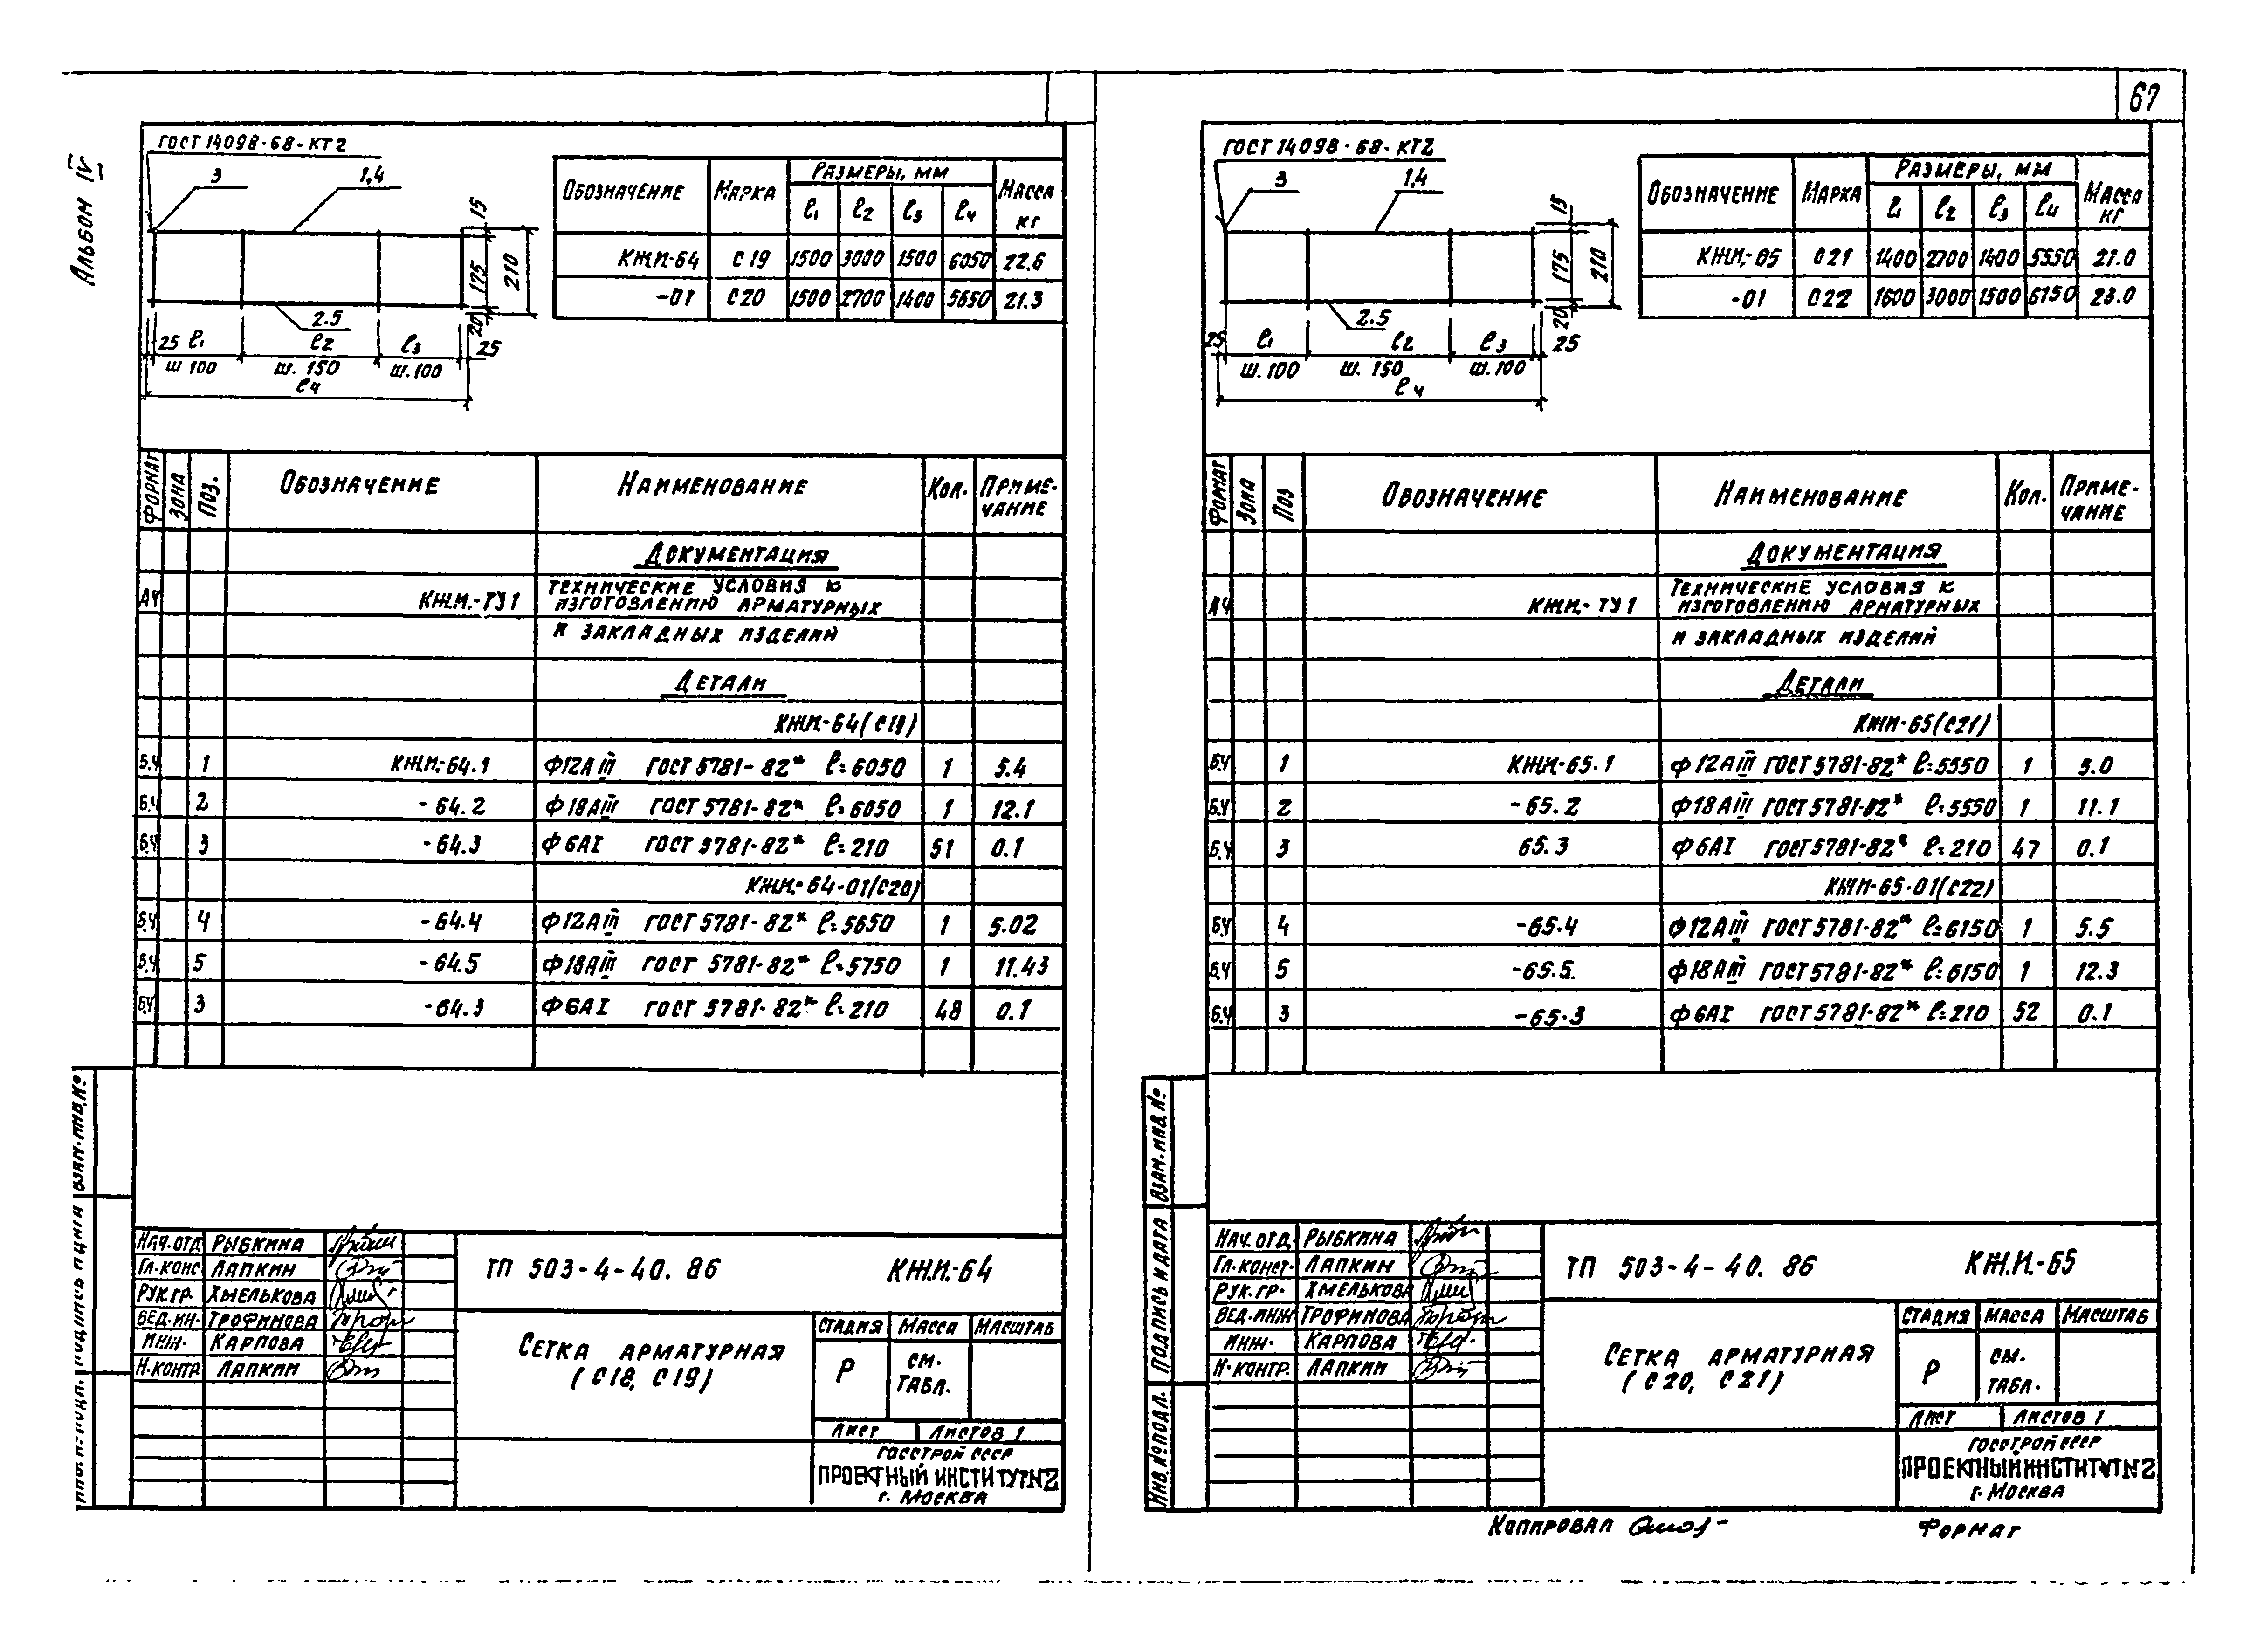 67
Альбом IV
ГОСТ 14098-68-КТ2
3
1,4
2.5
15
175
210
20
25 l1 l2 l3 25
ш 100 ш. 150 ш. 100
l4
Обозначение Марка Размеры, мм Масса кг
l1 l2 l3 l4
КЖ.И-64 С19 1500 3000 1500 6050 22.6
-01 С20 1500 2700 1400 5650 21.3
Формат Зона Поз. Обозначение Наименование Кол. Приме-
чание
Документация
А4 КЖ.И.-ТУ1 Технические условия к
изготовлению арматурных
и закладных изделий
Детали
КЖИ-64(С18)
Б.Ч 1 КЖ.И.-64.1 Ф12АIII ГОСТ 5781-82* l=6050 1 5.4
Б.Ч 2 -64.2 Ф18АIII ГОСТ 5781-82* l=6050 1 12.1
Б.Ч 3 -64.3 Ф6АI ГОСТ 5781-82* l=210 51 0.1
КЖ.И.-64-01(С20)
Б.Ч 4 -64.4 Ф12АIII ГОСТ 5781-82* l=5650 1 5.02
Б.Ч 5 -64.5 Ф18АIII ГОСТ 5781-82* l=5750 1 11.43
Б.Ч 3 -64.3 Ф6АI ГОСТ 5781-82* l=210 48 0.1
Взам.инв.№
Подпись и дата
Нач.отд Рыбкина
Гл.конс. Лапкин
Рук.гр. Хмелькова
Вед.ин. Трофимова
Инж. Карпова
Н.контр Лапкин
ТП 503-4-40.86 КЖ.И.-64
Сетка арматурная
(С18, С19)
Стадия Масса Масштаб
Р см.
табл.
Лист Листов 1
Госстрой СССР
ПРОЕКТНЫЙ ИНСТИТУТ №2
г. Москва
ГОСТ 14098-68-КТ2
3
1.4
2.5
15
175
210
20
25 l1 l2 l3 25
ш. 100 ш. 150 ш. 100
l4
Обозначение Марка Размеры, мм Масса кг
l1 l2 l3 l4
КЖ.И.-65 С21 1400 2700 1400 5550 21.0
-01 С22 1600 3000 1500 6150 23.0
Формат Зона Поз Обозначение Наименование Кол. Приме-
чание
Документация
А4 КЖ.И.-ТУ1 Технические условия к
изготовлению арматурных
и закладных изделий
Детали
КЖИ-65(С21)
Б.Ч 1 КЖ.И-65.1 Ф12АIII ГОСТ 5781-82* l=5550 1 5.0
Б.Ч 2 -65.2 Ф18АIII ГОСТ 5781-82* l=5550 1 11.1
Б.Ч 3 65.3 Ф6АI ГОСТ 5781-82* l=210 47 0.1
КЖИ-65-01(С22)
Б.Ч 4 -65.4 Ф12АIII ГОСТ 5781-82* l=6150 1 5.5
Б.Ч 5 -65.5. Ф18АIII ГОСТ 5781-82* l=6150 1 12.3
Б.Ч 3 -65.3 Ф6АI ГОСТ 5781-82* l=210 52 0.1
Взам.инв.№
Подпись и дата
Инв.№подл.
Нач.отд. Рыбкина
Гл.конст. Лапкин
Рук.гр. Хмелькова
Вед.инж Трофимова
Инж. Карпова
Н.контр. Лапкин
ТП 503-4-40.86 КЖ.И.-65
Сетка арматурная
(С20, С21)
Стадия Масса Масштаб
Р см.
табл.
Лист Листов 1
Госстрой СССР
ПРОЕКТНЫЙ ИНСТИТУТ №2
г. Москва
Копировал Формат